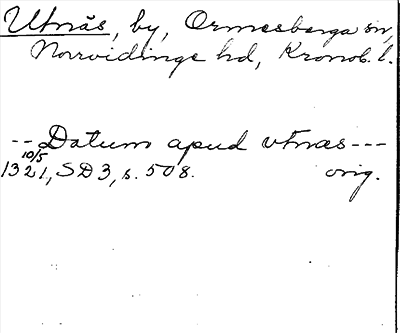 Utnäs, by, Ormesberga sn,
Norrvidinge hd, Kronob. l.
-- Datum apud vtnas ---
10/5
1321, SD 3, s. 508. orig.